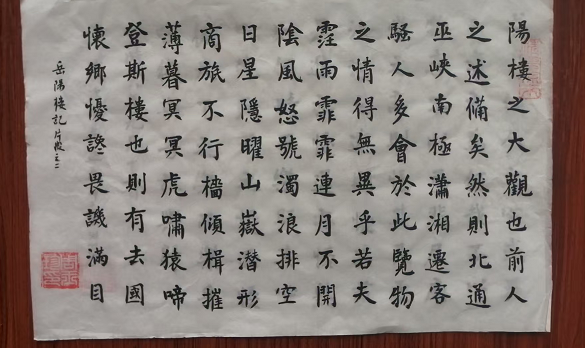 陽樓之大觀也前人
之述備矣然則北通
巫峽南極瀟湘遷客
騷人多會於此覽物
之情得無異乎若夫
霪雨霏霏連月不開
陰風怒號濁浪排空
日星隱曜山嶽潛形
商旅不行檣傾楫摧
薄暮冥冥虎嘯猿啼
登斯樓也則有去國
懷鄉憂讒畏譏滿目
岳陽樓記片段之二